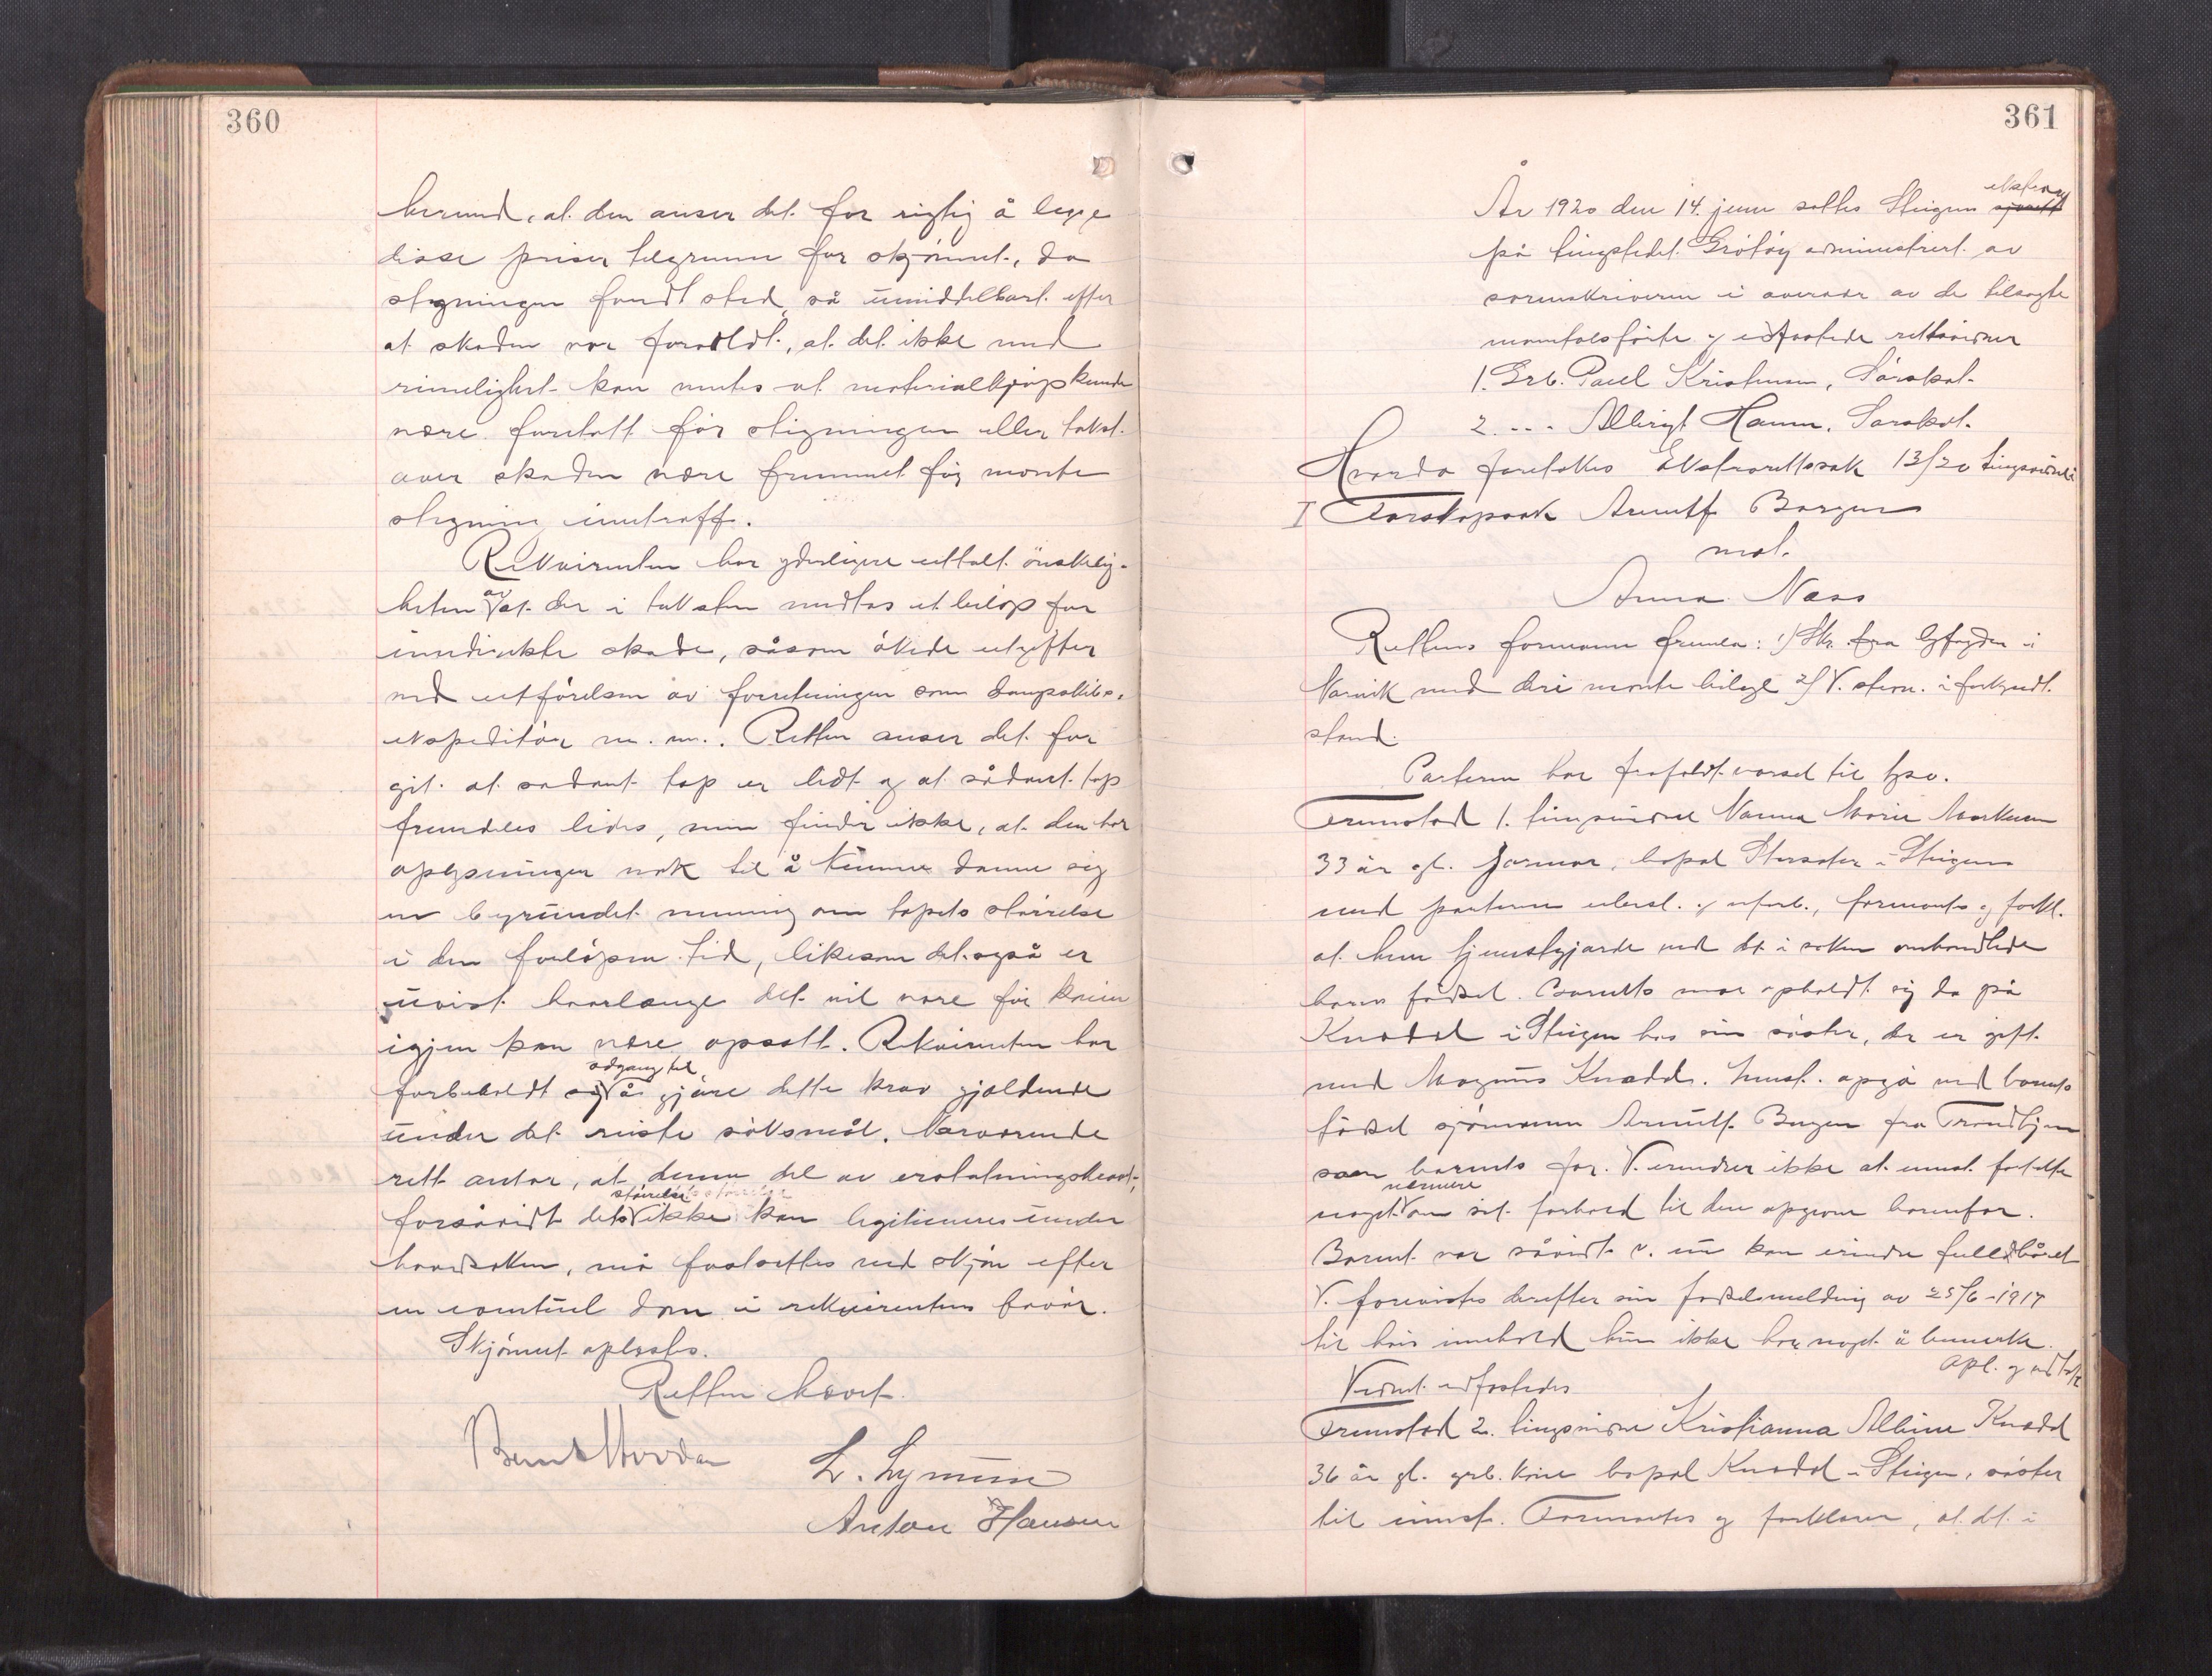 360
herund, at den anser det for rigtig å legge
disse priser tilgrunn for skjønnet, da
stigningen fandt sted så umiddelbart efter
at skaden var forvoldt, at det ikke med
rimelighet kan ventes at materialkjøp kunde
være foretatt før stigningen eller takst
over skaden være fremmet før nevnte
stigning inntraff.
Rekvirenten har yderligere uttalt ønskelig-
heten av at der i taksten medtas et beløp for
inndirekte skade, såsom økede utgifter
ved utførelsen av forretningen som dampskibs-
ekspeditør m. m.. Retten anser det for
git at sådant tap er lidt og at sådant tap
fremdeles lides, men finder ikke, at den har
oplysninger nok til å kunne danne sig
en begrundet mening om tapets størrelse
i den forløpne tid, likesom det også er
uvist hvorlænge det vil vare før kaien
igjen kan være opsatt. Rekvirenten har
adgang til
forbeholdt sig å gjøre dette krav gjældende
under det reiste søksmål. Nærværende
rett antar, at denne del av erstatningskravet,
størrelse
forsåvidt dets ikke kan legitimeres under
hovedsaken, må fastsettes ved skjøn efter
en eventuel dom i rekvirentens favør.
Skjønnet oplestes.
Retten hævet.
Bernt Hovda L. Lynum
Anton Hansen
361
ekstrarett
År 1920 den 14. juni sattes Steigen
på tingstedet Grøtøy administrert av
sorenskriveren i overvær av de tilsagte
manntalsførte og edfæstede rettsvidner
1. Grb. Paul Kristensen, Sørskot.
2. --- Albrigt Hamn, Sørskot.
Hvorda foretokes Ekstrarettssak 13/20 tingsvidne i
I Farskapssak Arnulf Borgen
mot.
Anna Næss
Rettens formann fremla: 1) Skr. fra Byfogden i
Narvik med deri nevnte bilage 2) V. stevn. i forkyndt
stand.
Parterne har frafaldt varsel til tgsv.
Fremstod 1. tingsvidne Nanna Marie Markussen
33 år gl. jormor, bopæl Storsæter i Steigen
med parterne ubesl. og uforb., formantes og forkl.
at hun tjenstgjorde ved det i saken omhandlede
barns fødsel. Barnets mor opholdt sig da på
Knædal i Steigen hos sin søster, der er gift
med Magnus Knædal. Innst. opga ved barnets
fødsel sjømann Arnulf Borgen fra Trondhjem
som barnets far. V. erindrer ikke at innst. fortalte
nærmere
noget om sit forhold til den opgivne barnefar.
Barnet var såvidt v. nu kan erindre fuldbåret
V. forevistes derefter sin fødselsmelding av 25/6-1917
til hvis innehold hun ikke har noget å bemerke.
opl. og vedt.
Vidnet edfæstedes
Fremstod 2. tingsvidne Kristianna Albine Knædal
36 år gl. grb. kone bopæl Knædal i Steigen, søster
til innst. Formantes og forklarer, at det i